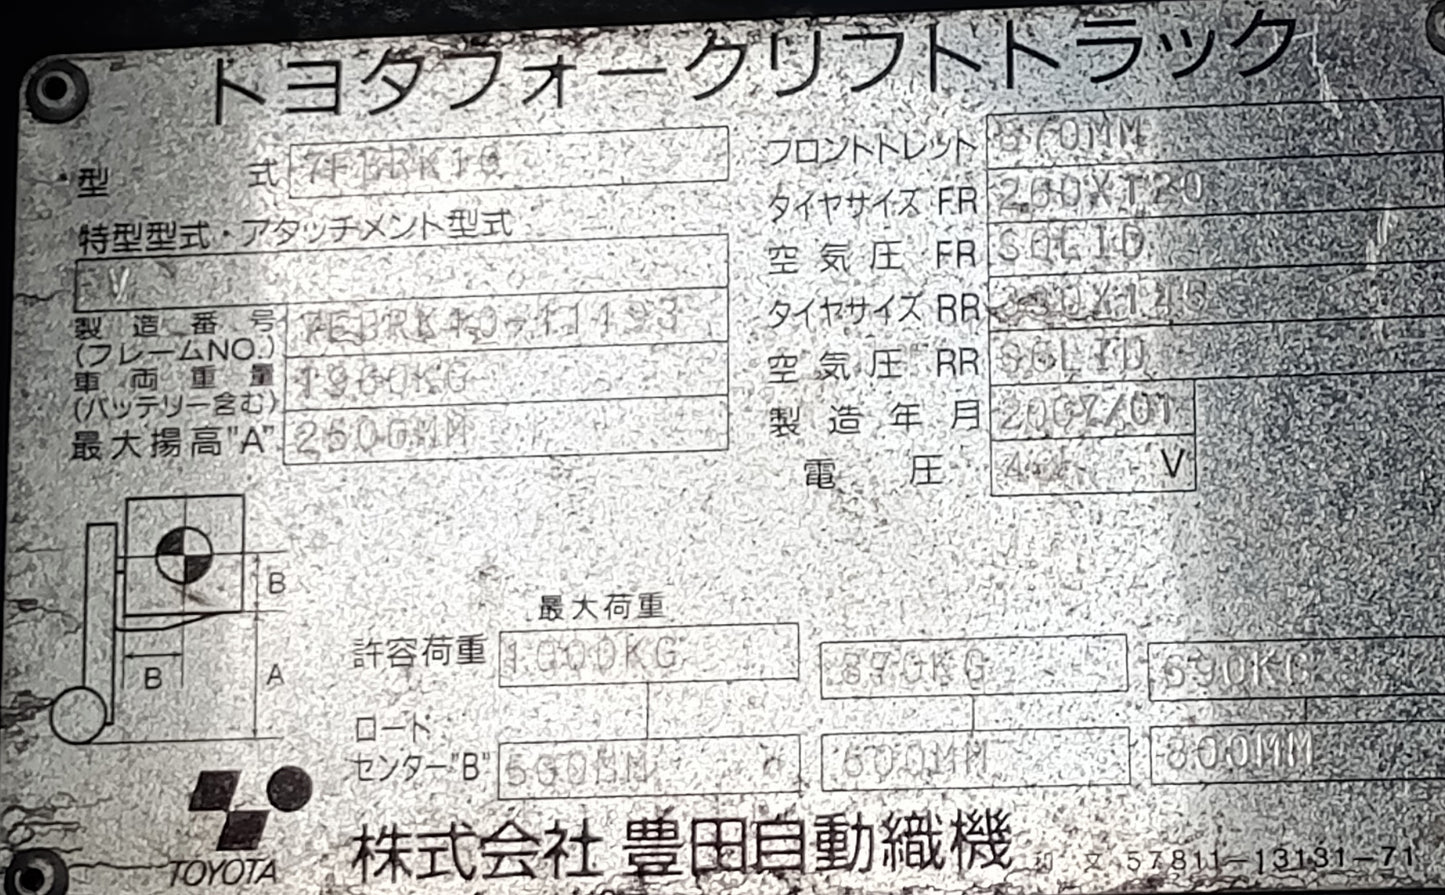 トヨタフォークリフトトラック
型式 7FBRK10
特型型式・アタッチメント型式
V
製造番号
(フレームNO.) 7FBRK10-11193
車両重量
(バッテリー含む) 1960KG
最大揚高"A" 2500MM
フロントトレット 870MM
タイヤサイズ FR
空気圧 FR SOLID
タイヤサイズ RR
空気圧 RR SOLID
製造年月 2007/01
電圧 V
B
B
A
最大荷重
許容荷重 1000KG 870KG 690KG
ロード
センター"B" 500MM 600MM 800MM
TOYOTA
株式会社 豊田自動織機
和文 57811-13131-71